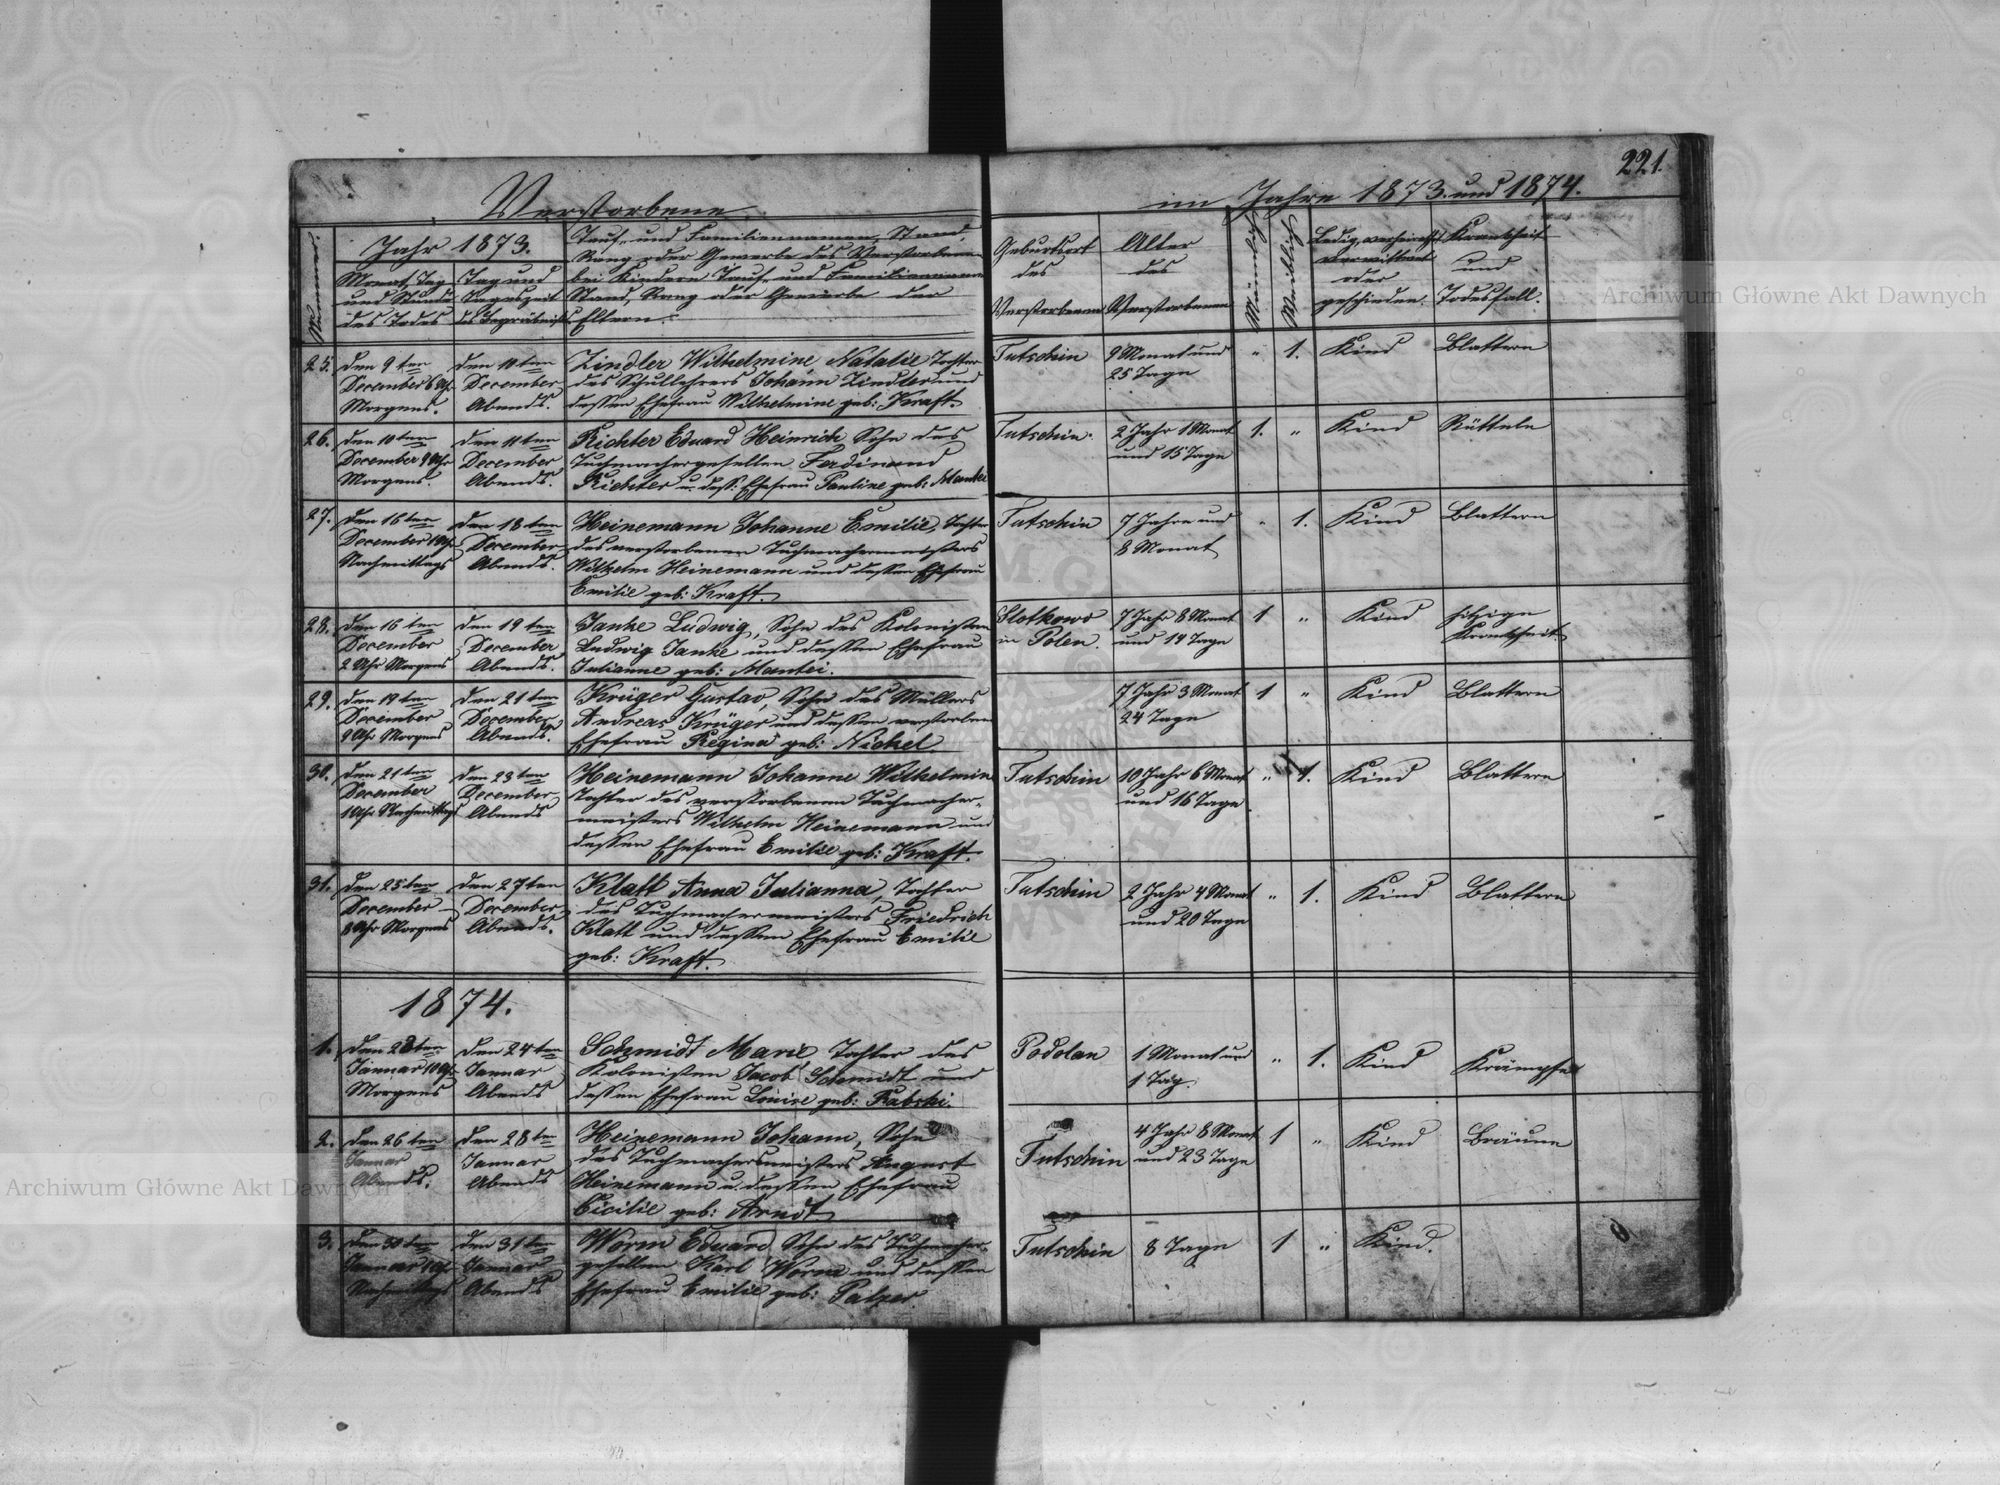 221.
Verstorbene
im Jahre 1873. und 1874.
Nummer.
Jahr 1873.
Monat, Tag
und Stunde
des Todes
Tag und
Tageszeit
des Begräbnisses
Tauf- und Familiennamen, Stand,
Rang oder Gewerbe des Verstorbenen
bei Kindern Tauf- und Familiennamen
Stand, Rang oder Gewerbe der
Eltern.
Geburtsort
des
Verstorbenen
Alter
des
Verstorbenen
Männlich
Weiblich
Ledig, verheirathet
verwittwet
oder
geschieden.
Krankheit
und
Todesfall.
25.
den 9ten
December 6 Uhr
Morgens.
den 11ten
December
Abends.
Zindler Wilhelmine Natalie Tochter
des Schullehrers Johann Zindler und
dessen Ehefrau Wilhelmine geb: Kraft.
Tutschin
9 Monat und
25 Tage
" 1. Kind Blattern
26.
den 10ten
December 9 Uhr
Morgens.
den 11ten
December
Abends.
Richter Eduard Heinrich Sohn des
Tuchmachergesellen Ferdinand
Richter u. dess: Ehefrau Pauline geb: Mantei
Tutschin.
2 Jahr 1 Monat
und 15 Tage
1. " Kind Rötteln
27.
den 16ten
December 1 Uhr
Nachmittags
den 18ten
December
Abends.
Heinemann Johanne Emilie, Tochter
des verstorbenen Tuchmachermeisters
Wilhelm Heinemann und dessen Ehefrau
Emilie geb: Kraft.
Tutschin
7 Jahre und
8 Monat
" 1. Kind Blattern
28.
den 16ten
December
2 Uhr Morgens
den 19ten
December
Abends.
Janke Ludwig, Sohn des Kolonisten
Ludwig Janke und dessen Ehefrau
Julianne geb: Mantei.
Slotkowo
in Polen.
7 Jahr 8 Monat
und 14 Tage
1 " Kind hitzige
Krankheit.
29.
den 19ten
December
9 Uhr Morgens
den 21ten
December
Abends.
Krüger Gustav, Sohn des Müllers
Andreas Krüger und dessen verstorbene
Ehefrau Regina geb: Nickel
7 Jahr 3 Monat
24 Tage
1 " Kind Blattern
30.
den 21ten
December
1 Uhr Nachmittags
den 23ten
December
Abends
Heinemann Johanne Wilhelmine
Tochter des verstorbenen Tuchmacher-
meisters Wilhelm Heinemann und
dessen Ehefrau Emilie geb: Kraft.
Tutschin
10 Jahr 6 Monat
und 16 Tage
" 1. Kind Blattern
31.
den 25ten
December
8 Uhr Morgens
den 27ten
December
Abends.
Klatt Anna Julianna, Tochter
des Tuchmachermeisters Friedrich
Klatt und dessen Ehefrau Emilie
geb: Kraft.
Tutschin
2 Jahr 4 Monat
und 20 Tage
" 1. Kind Blattern
1874.
1.
Januar 10 Uhr
Morgens
den 24ten
Januar
Abends
Schmidt Marie, Tochter des
Kolonisten Jacob Schmidt und
dessen Ehefrau Louise geb: Rabski.
Podolan
1 Monat und
1 Tag.
" 1. Kind Krämpfe
2.
den 26ten
Januar
Abends.
den 28ten
Januar
Abends
Heinemann Johann, Sohn
des Tuchmachermeisters August
Heinemann u. dessen Ehefrau
Cicilie geb: Arndt
Tutschin
4 Jahr 8 Monat
und 23 Tage
1 " Kind Bräune
3.
den 30ten
Nachmittags
den 31ten
Januar
Abends
Worm Eduard, Sohn des Tuchmacher-
gesellen Karl Worm und dessen
Ehefrau Emilie geb: Palzer.
Tutschin
8 Tage
1 " Kind.
Archiwum Główne Akt Dawnych
Archiwum Główne Akt Dawnych